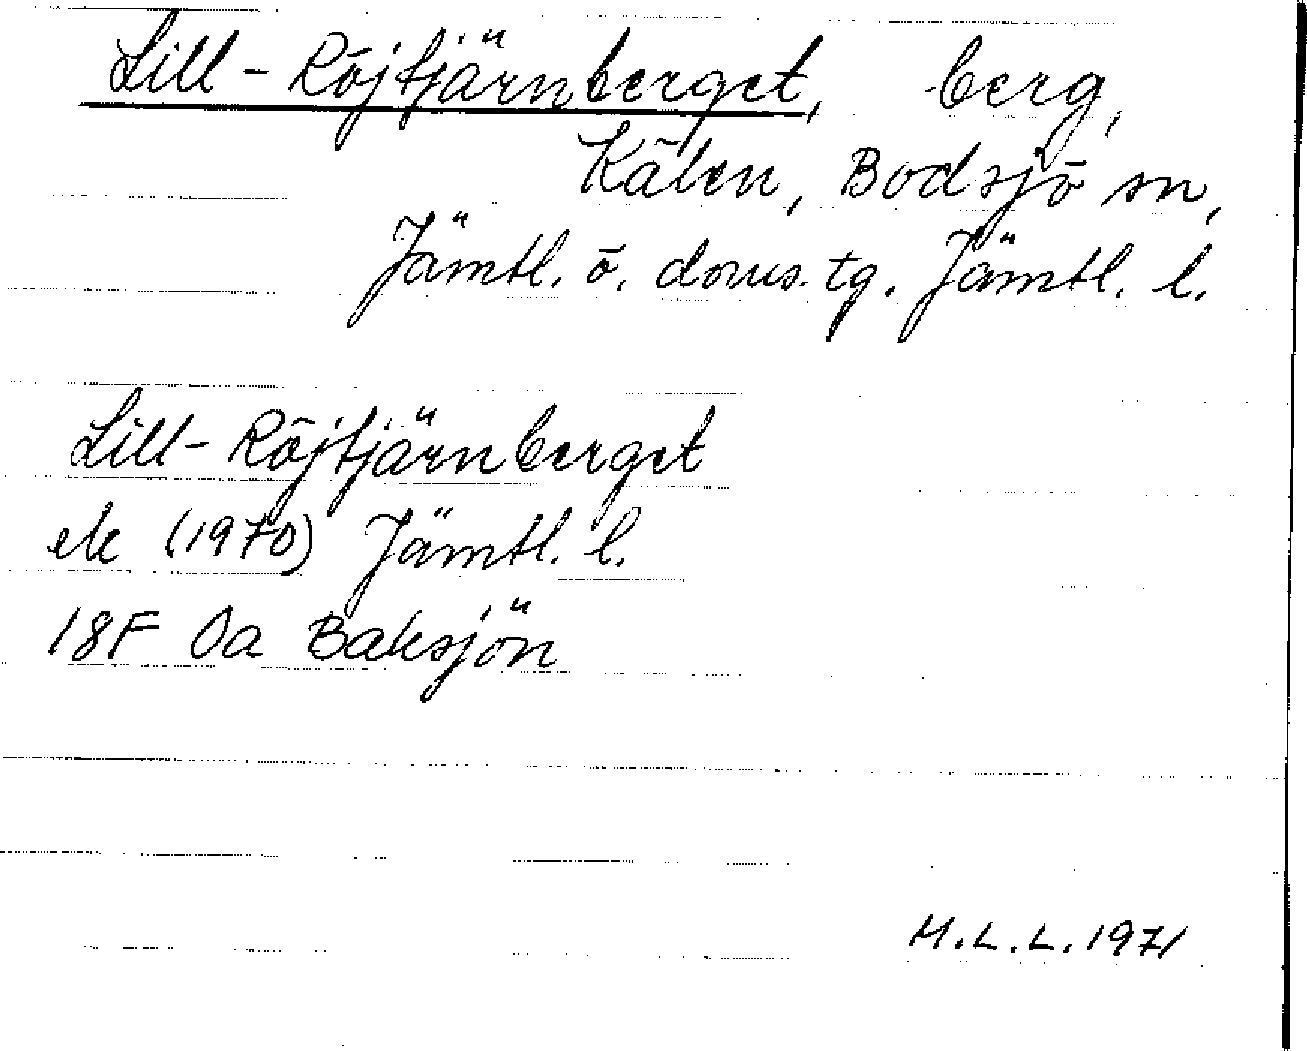 Lill-Röjtjärnberget, berg,
Kälen, Bodsjö sn,
Jämtl. ö. doms.tg. Jämtl. l.
Lill-Röjtjärnberget
ek (1970) Jämtl. l.
18F 0a Baksjön
M.L.L. 1971